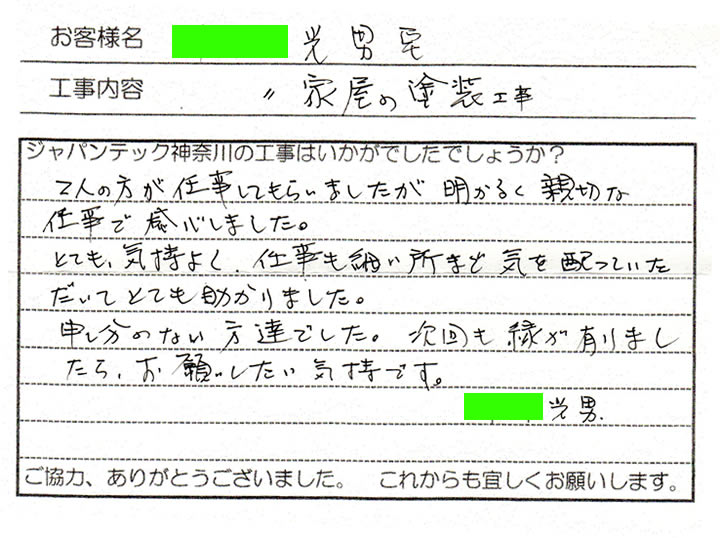 お客様名 光男宅
工事内容 〃 家屋の塗装工事
ジャパンテック神奈川の工事はいかがでしたでしょうか?
2人の方が仕事してもらいましたが明かるく親切な
仕事で感心しました。
とても、気持よく、仕事も細い所まで気を配っていた
だいてとても助かりました。
申し分のない方達でした。次回も縁が有りまし
たら、お願いしたい気持です。
光男.
ご協力、ありがとうございました。 これからも宜しくお願いします。